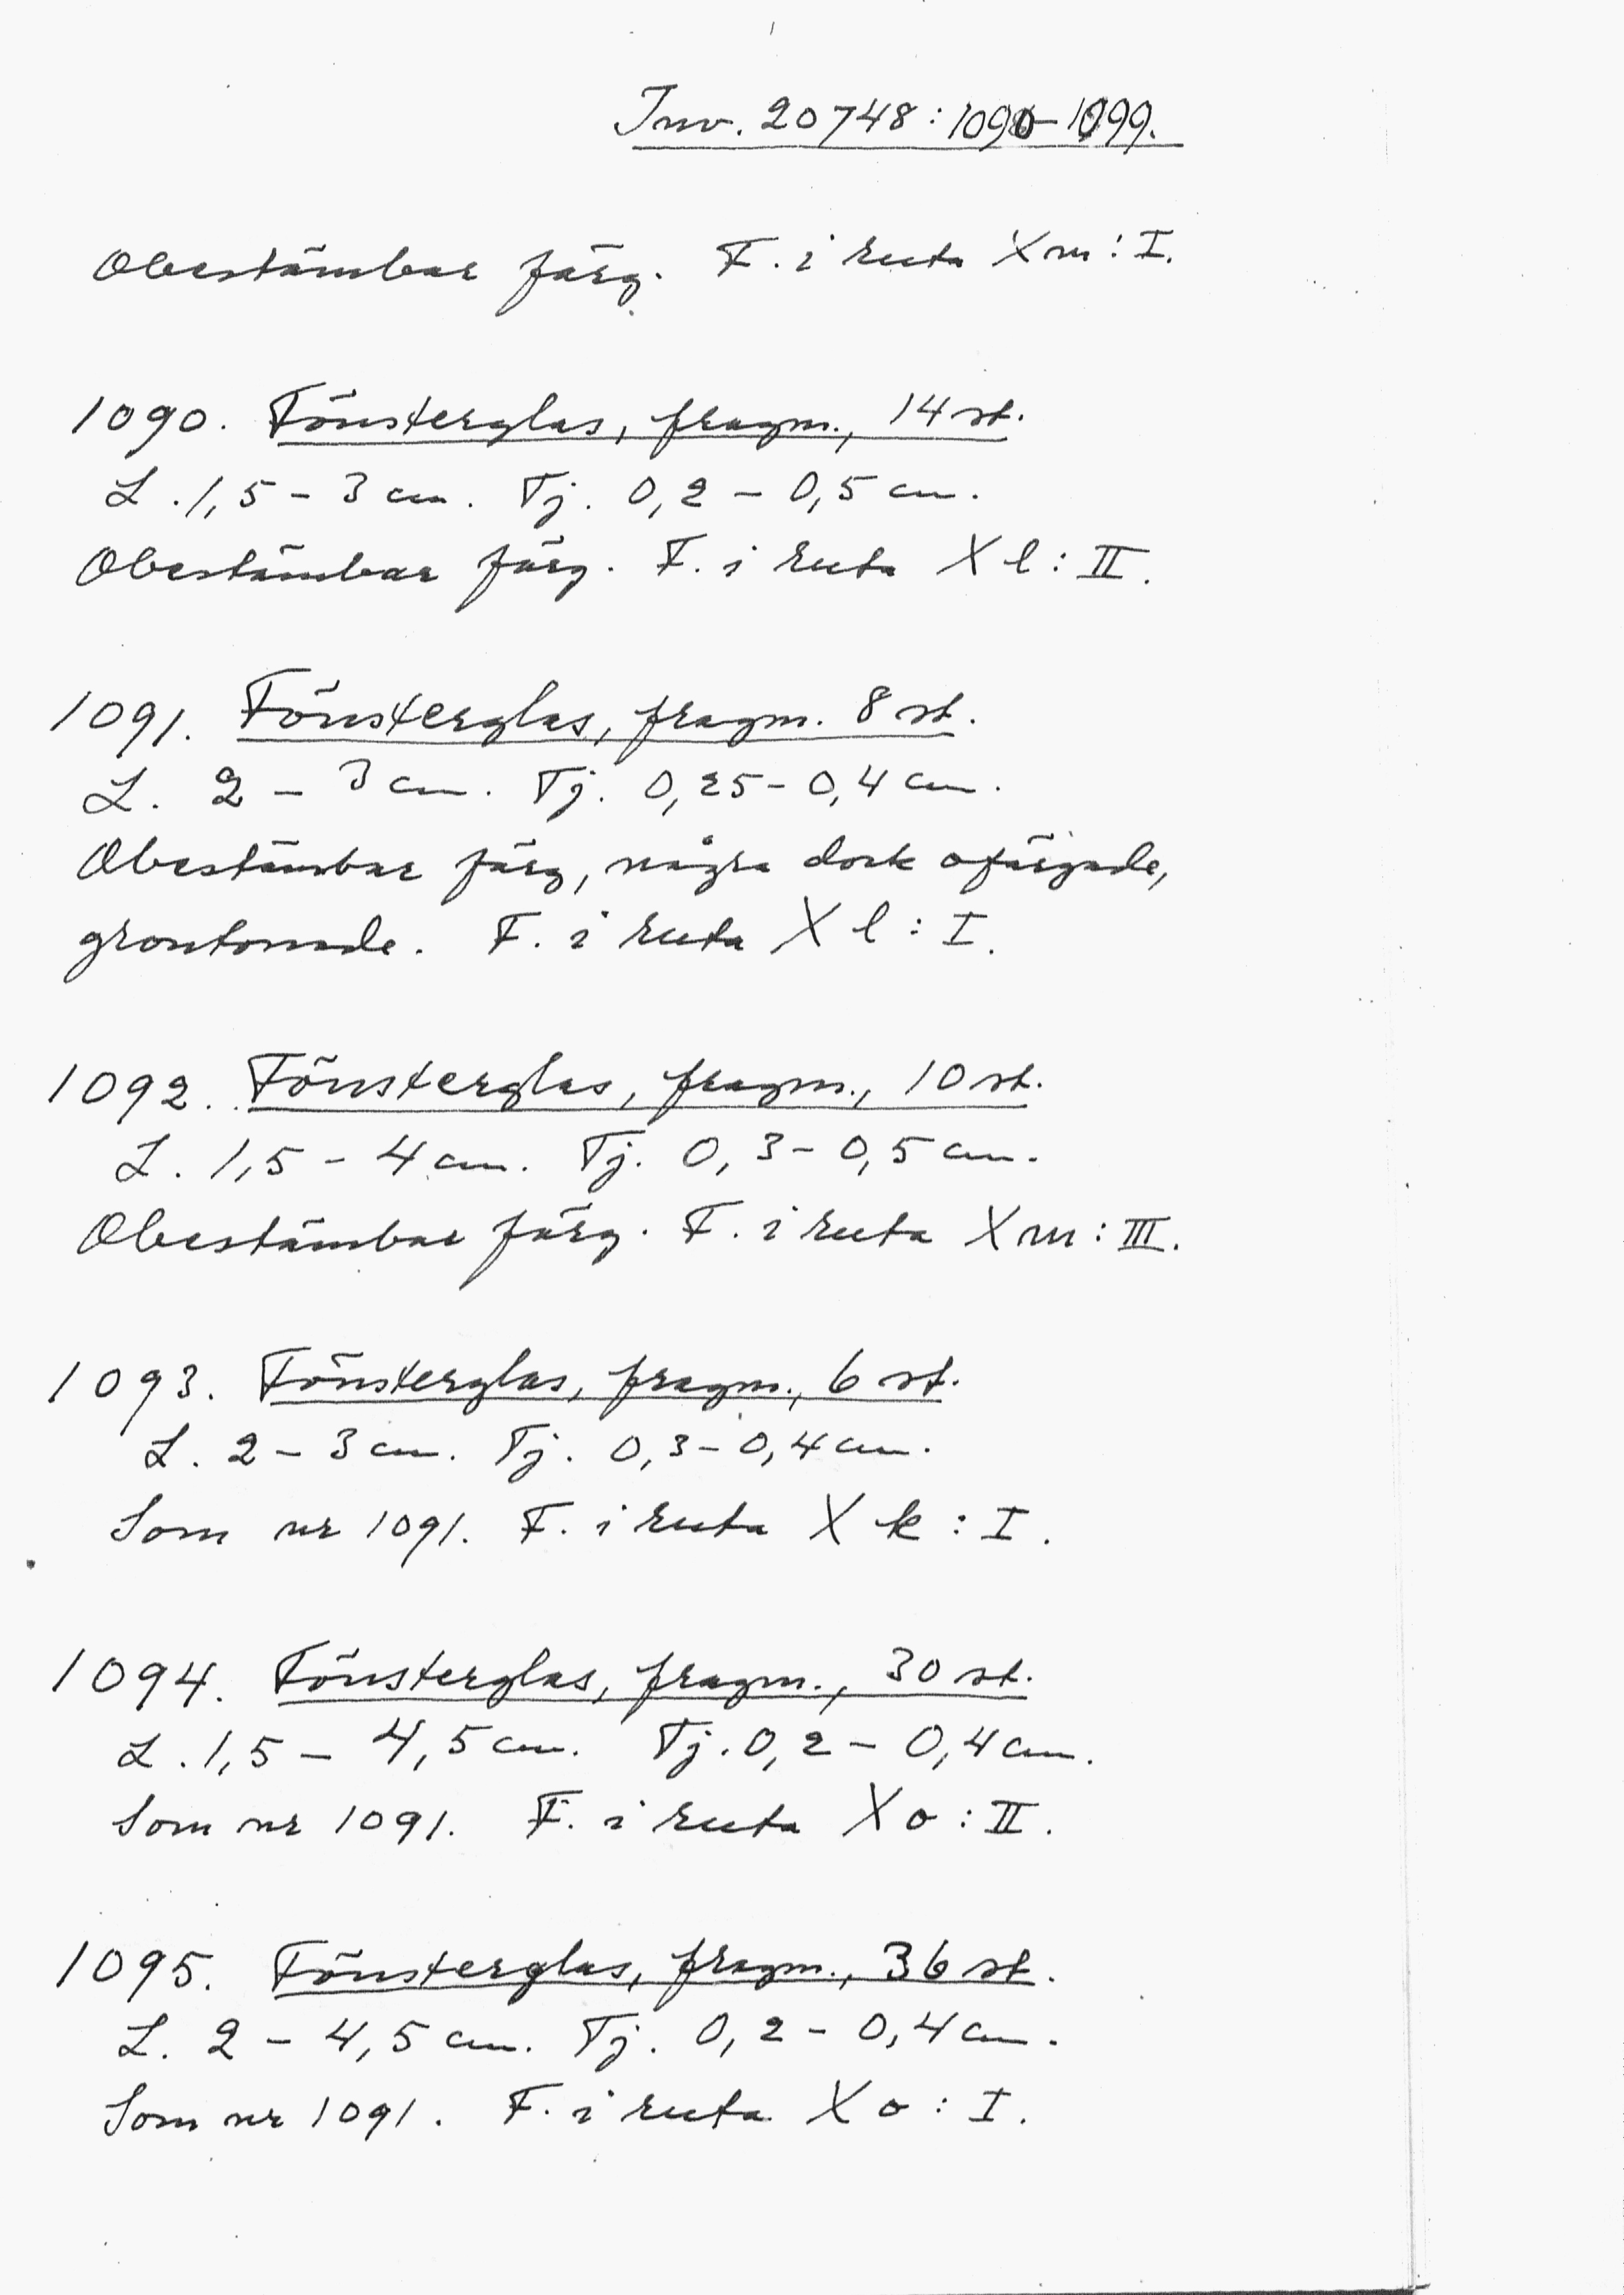 Inv. 20748:1090-1099.
Obestämbar färg. F. i ruta Xm:I.
1090. Fönsterglas, fragm., 14 st.
L. 1,5-3 cm. Tj. 0,2-0,5 cm.
Obestämbar färg. F. i ruta Xl:II.
1091. Fönsterglas, fragm. 8 st.
L. 2-3 cm. Tj. 0,25-0,4 cm.
Obestämbar färg, några dock ofärgade,
grontonade. F. i ruta Xl:I.
1092. Fönsterglas, fragm., 10 st.
L. 1,5-4 cm. Tj. 0,3-0,5 cm.
Obestämbar färg. F. i ruta Xm:III.
1093. Fönsterglas, fragm., 6 st.
L. 2-3 cm. Tj. 0,3-0,4 cm.
Som nr 1091. F. i ruta Xk:I.
1094. Fönsterglas, fragm., 30 st.
L. 1,5-4,5 cm. Tj. 0,2-0,4 cm.
Som nr 1091. F. i ruta Xo:II.
1095. Fönsterglas, fragm., 36 st.
L. 2-4,5 cm. Tj. 0,2-0,4 cm.
Som nr 1091. F. i ruta Xo:I.